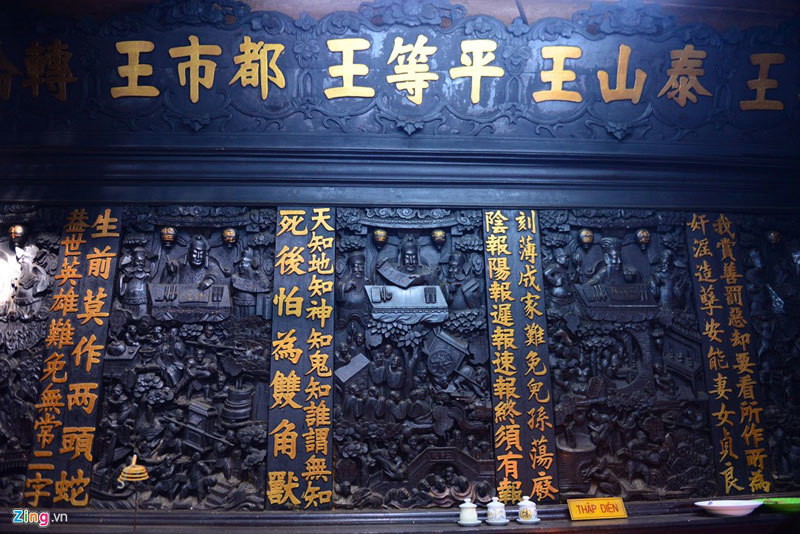 王
泰山王
平等王
都市王
轉
我賞善罰惡却要看所作所為
奸淫造孽安能妻女貞良
刻薄成家難免兒孫蕩廢
陰報陽報遲報速報終須有報
天知地知神知鬼知誰謂無知
死後怕為雙角獸
生前莫作两頭蛇
蓋世英雄難免無常二字
THẬP ĐIỆN
Zing.vn